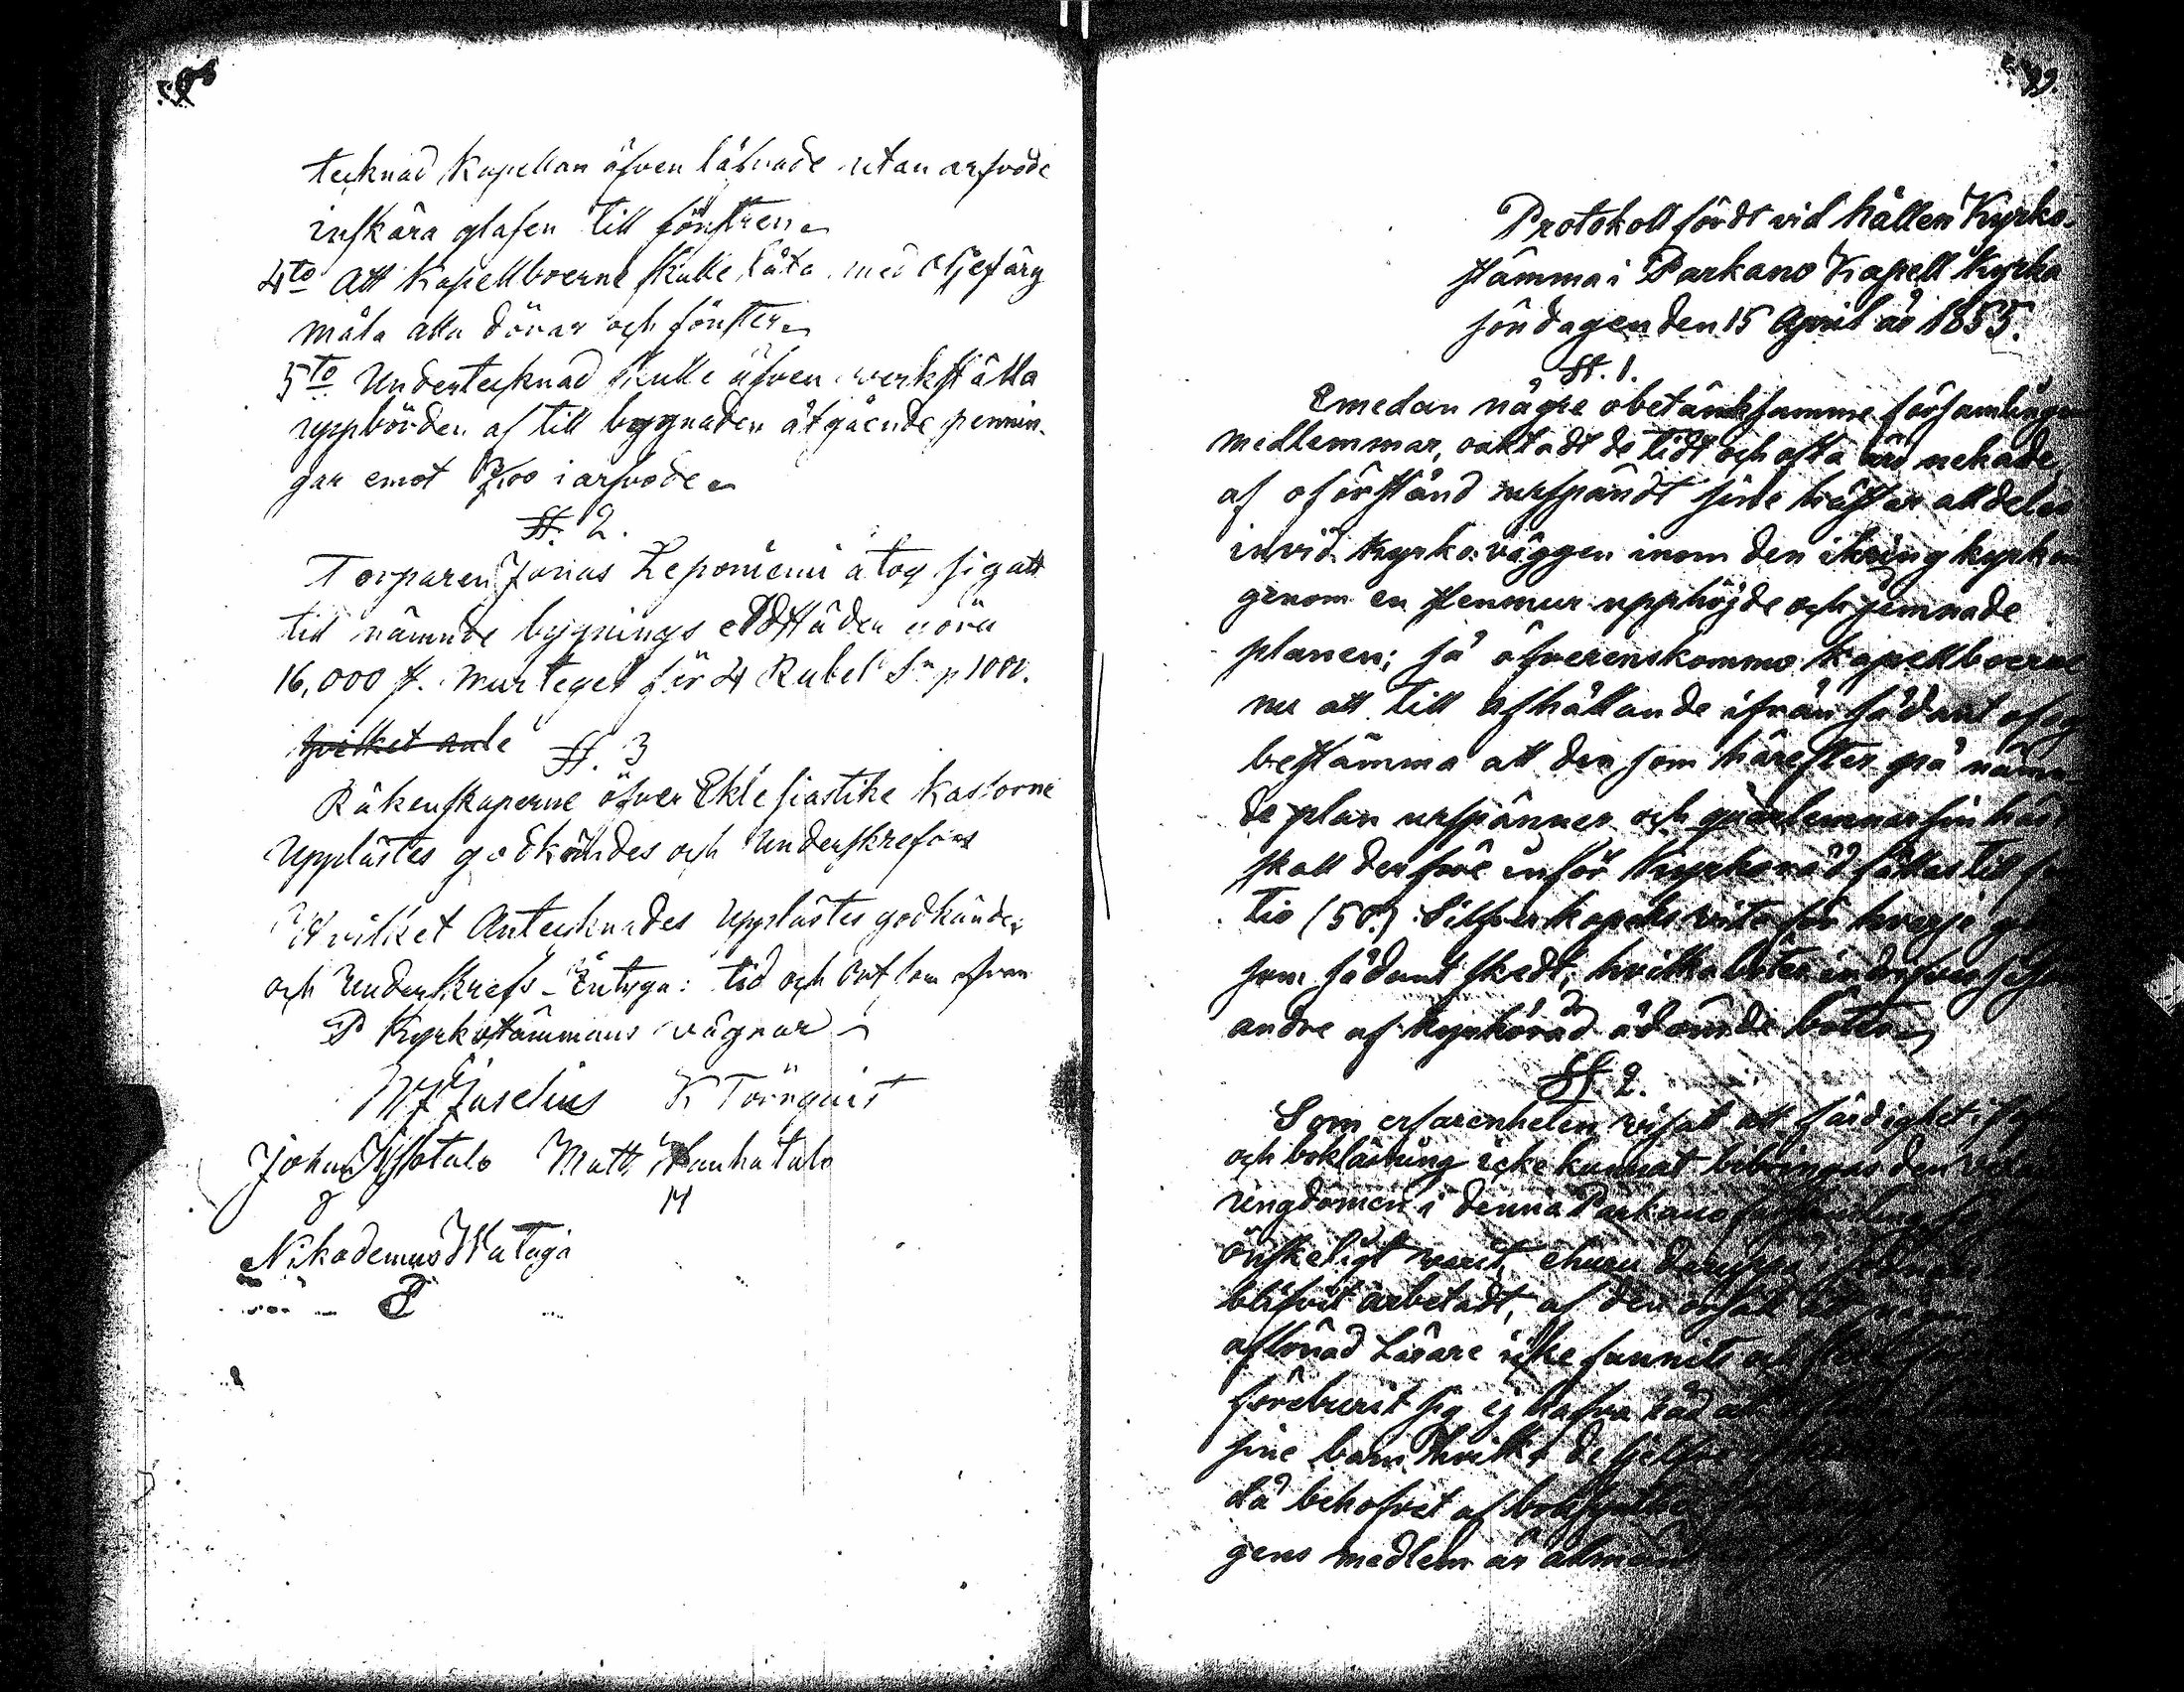 tecknad Kapellan äfven låfvade utan arfvode
inskära glasen till fönstren
4to Att Kapellboerne skulle låta med Oljefärg
måla alla dörar och fönster
5to Undertecknad skulle äfven verkställa
uppbörden af till byggnaden åtgående pennin-
gar emot i arfvode
§. 2.
Torparen Jonas Leponiemi åtog sig att
till nämnde bygnings eldstäder göra
16,000 st. murtegel för 4 Rubel Sr p 1000.
hvilket ande
§. 3
Räkenskaperne öfver Eklesiastike Kassorne
Upplästes godkändes och underskrefvos
Hvilket Antecknades Upplästes godkändes
och Underskrefs Intyga: tid och Ort som ofvan
P Kyrkostämmans vägnar
K Törnquist
Johan Ylisatalo Matts Vanhatalo
Nikodemus Wataja
Protokoll fördt vid hållen Kyrko-
stämma i Parkano Kapell Kyrka
söndagen den 15 April år 1855.
§. 1.
Emedan någre obetänksamme församlingens
medlemmar, oaktadt de tidt och ofta äro nekade,
af oförstånd urspändt sine hästar alldeles
invid Kyrko väggen inom den ikring kyrkan
genom en stenmur upphöjde och jemnade
planen; så öfverenskommo Kapellboerne
nu att till afhållande ifrån sådant
bestämma att den som härefter på nämn-
de plan urspänner och qvarlemnar sin häst
skall derföre inför Kyrkoråd fällas till
tio (50.) Silfverkopeks vite för hvarje gång
som sådant skedt, hvilka böter indrifves såsom
andre af kyrkoråd ådömde böter
§. 2.
Som erfarenheten visat att färdighet i
och boklärning icke kunnat bibringas den
ungdomen i denna Parkano församling
önskeligt warit, ehuru deruppå i
blifvit arbetadt, af den orsak att någon
aflönad Lärare icke funnits och
föreburit sig ej hafva råd att
sine barn hvilka de sjelfve
då behofvet af
gens medlem är allmänt